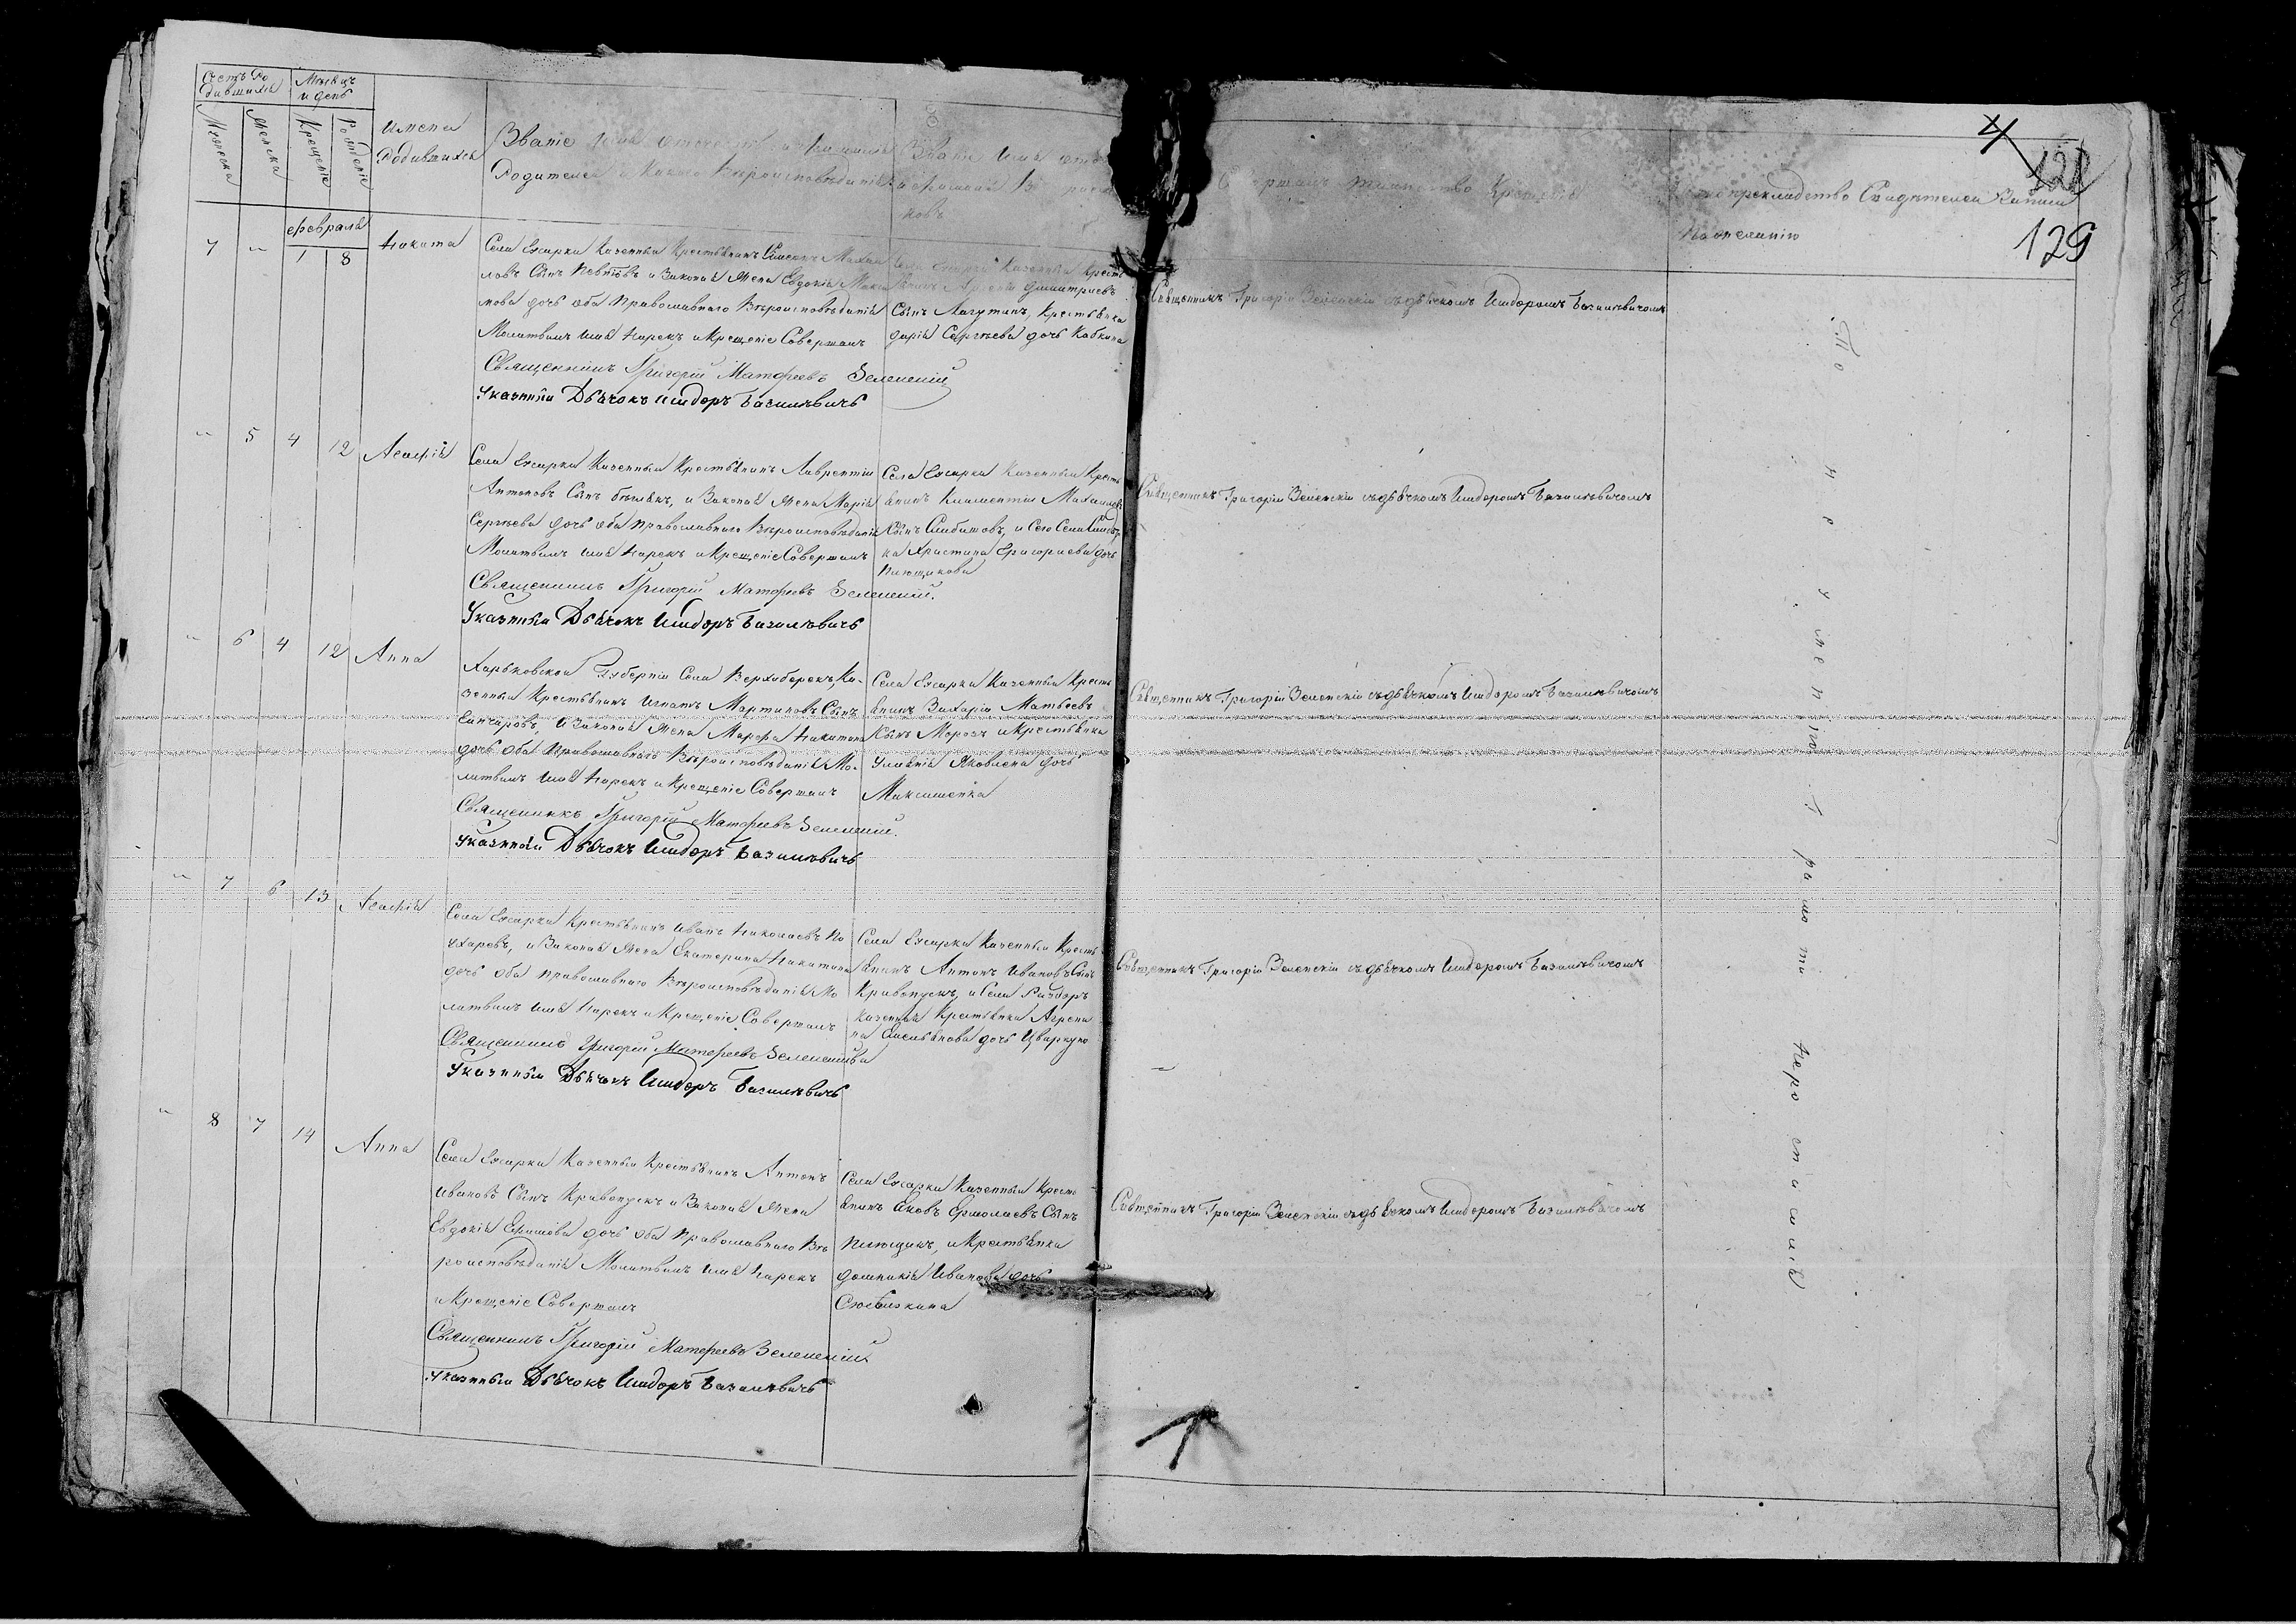 Счетъ Ро
дившихся
Мѣсяцъ
и день
Мужеска
Женска
Крещенія
Рожденія
Имена
Родившихся
Званіе имя отчество и фамилія
Родителей и какого Вѣроисповѣданія
Званіе имя отче
и фамилія Воспріем
ковъ
Совершалъ таинство Крещенія
Рукоприкладство Свидѣтелей записи
По желанію
4
128
129
февраля
7
"
1
8
Никита
Села Ехарки Казенный Крестьянинъ Симеонъ Михаи
ловъ Сынъ и Законная Жена Евдокія
мова дочь оба Православнаго Вѣроисповѣданія
Молитвилъ имя Нарекъ и Крещеніе Совершалъ
Священникъ Григорій Матфеевъ Зеленскій
Указный Дьячокъ Исидоръ Базилѣвичъ
Села Казенный Кресть
янинъ Димитріевъ
Сынъ Лагутинъ, Крестьянка
дарія Сергѣева дочь Кобкина
Священникъ Григорій Зеленскій съ дьячкомъ Исидоромъ Базилѣвичомъ
"
5
4
12
Агафія
Села Ехарки Казенный Крестьянинъ Лаврентій
Антоновъ Сынъ и Законая Жена Марія
Сергѣева дочь оба православнаго Вѣроисповѣданія
Молитвилъ имя Нарекъ и Крещеніе Совершалъ
Священникъ Григорій Матфеевъ Зеленскій.
Указный Дьячокъ Исидоръ Базилѣвичъ
Села Ехарки Казенный Кресть
янинъ Климентій Михаиловъ
Сынъ и Сего Села
ка Христина Григориева дочь
Священникъ Григорій Зеленскій съ дьячкомъ Исидоромъ Базилѣвичомъ
"
6
4
12
Анна
Харьковской Губерніи Села Ка-
зенный Крестьянинъ Игнатъ Мартиновъ Сынъ
и Законая Жена Марфа Никитина
дочь оба Православнаго Вѣроисповѣданія Мо-
литвилъ имя Нарекъ и Крещеніе Совершалъ
Священникъ Григорій Матфеевъ Зеленскій.
Указный Дьячокъ Исидоръ Базилѣвичъ
Села Ехарки Казенный Кресть
янинъ Захарій Матвеевъ
Сынъ Морозъ и Крестьянка
Уліянія Яковлева дочь
Максименка
Священникъ Григорій Зеленскій съ дьячкомъ Исидоромъ Базилѣвичомъ
"
7
6
13
Агафія
Села Ехарки Крестьянинъ Иванъ Николаевъ По
ухаревъ, и Законая Жена Екатерина Никитина
дочь оба православнаго Вѣроисповѣданія Мо
литвилъ имя Нарекъ и Крещеніе Совершалъ
Священникъ Григорій Матфеевъ Зеленскій
Указный Дьячокъ Исидоръ Базилѣвичъ
Села Ехарки Казенный Кресть
янинъ Антонъ Ивановъ Сынъ
Кривопускъ, и Села Раздоръ
казенная Крестьянка Агрепи
на Емельянова дочь Цваркуно
ва
Священникъ Григорій Зеленскій съ дьячкомъ Исидоромъ Базилѣвичомъ
"
8
7
14
Анна
Села Ехарки Казенный Крестьянинъ Антонъ
Ивановъ Сынъ Кривопускъ и Законая Жена
Евдокія Ефимова дочь оба Православнаго Вѣ
роисповѣданія Молитвилъ имя Нарекъ
и Крещеніе Совершалъ
Священникъ Григорій Матфеевъ Зеленскій
Указный Дьячокъ Исидоръ Базилѣвичъ
Села Ехарки Казенный Кресть
янинъ Яковъ Ермолаевъ Сынъ
и Крестьянка
домникія Иванова дочь
Священникъ Григорій Зеленскій съ дьячкомъ Исидоромъ Базилѣвичомъ
По неумѣнію Грамоти Неросписался